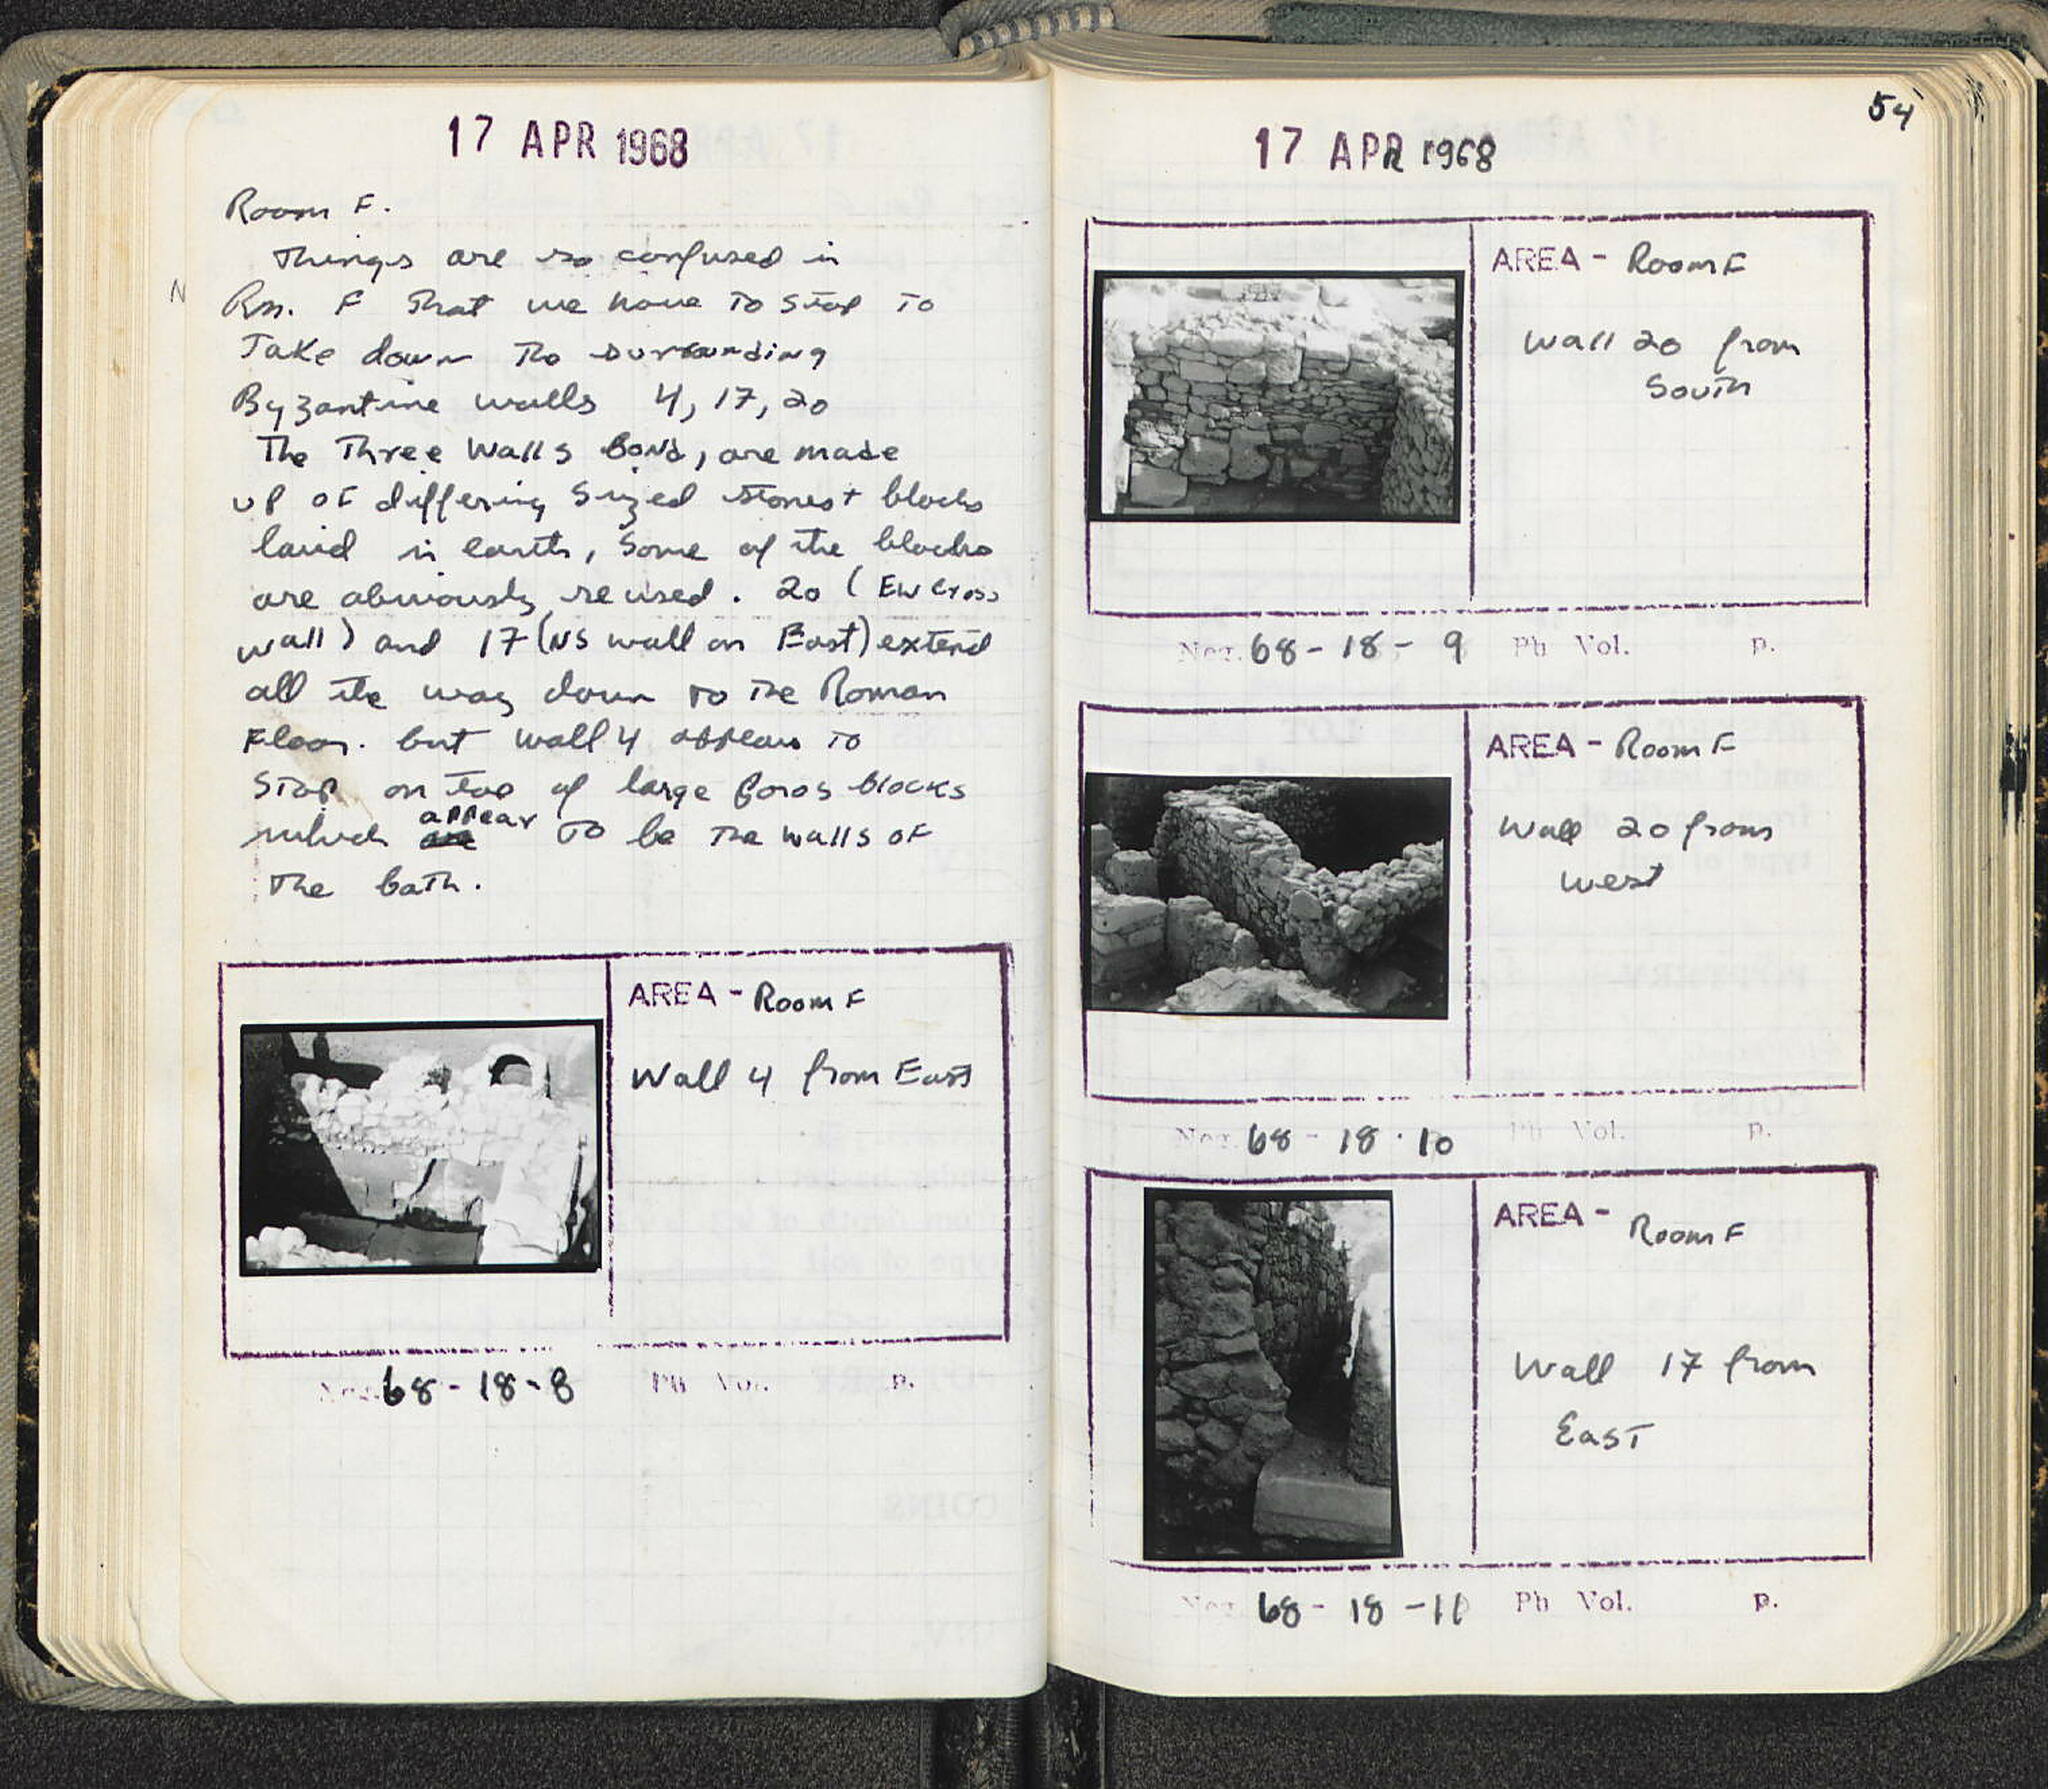 17 APR 1968
Room F.
Things are so confused in
N
Rm. F that we have to stop to
Take down The surrounding
Byzantine walls 4, 17, 20
The Three Walls Bond, are made
up of differing sized stones + blocks
laid in earth, Some of the blocks
are obviously reused. 20 (EW Cross
wall) and 17 (NS wall on East) extend
all the way down to the Roman
Floor. but wall 4 appears to
stop on top of large poros blocks
which appear to be the walls of
the bath.
AREA - Room F
Wall 4 from East
Neg. 68-18-8 Ph Vol. p.
54
17 APR 1968
AREA - Room F
Wall 20 from
South
Neg. 68-18-9 Ph Vol. p.
AREA - Room F
Wall 20 from
West
Neg. 68-18-10 Ph Vol. p.
AREA - Room F
Wall 17 from
East
Neg. 68-18-11 Ph Vol. p.